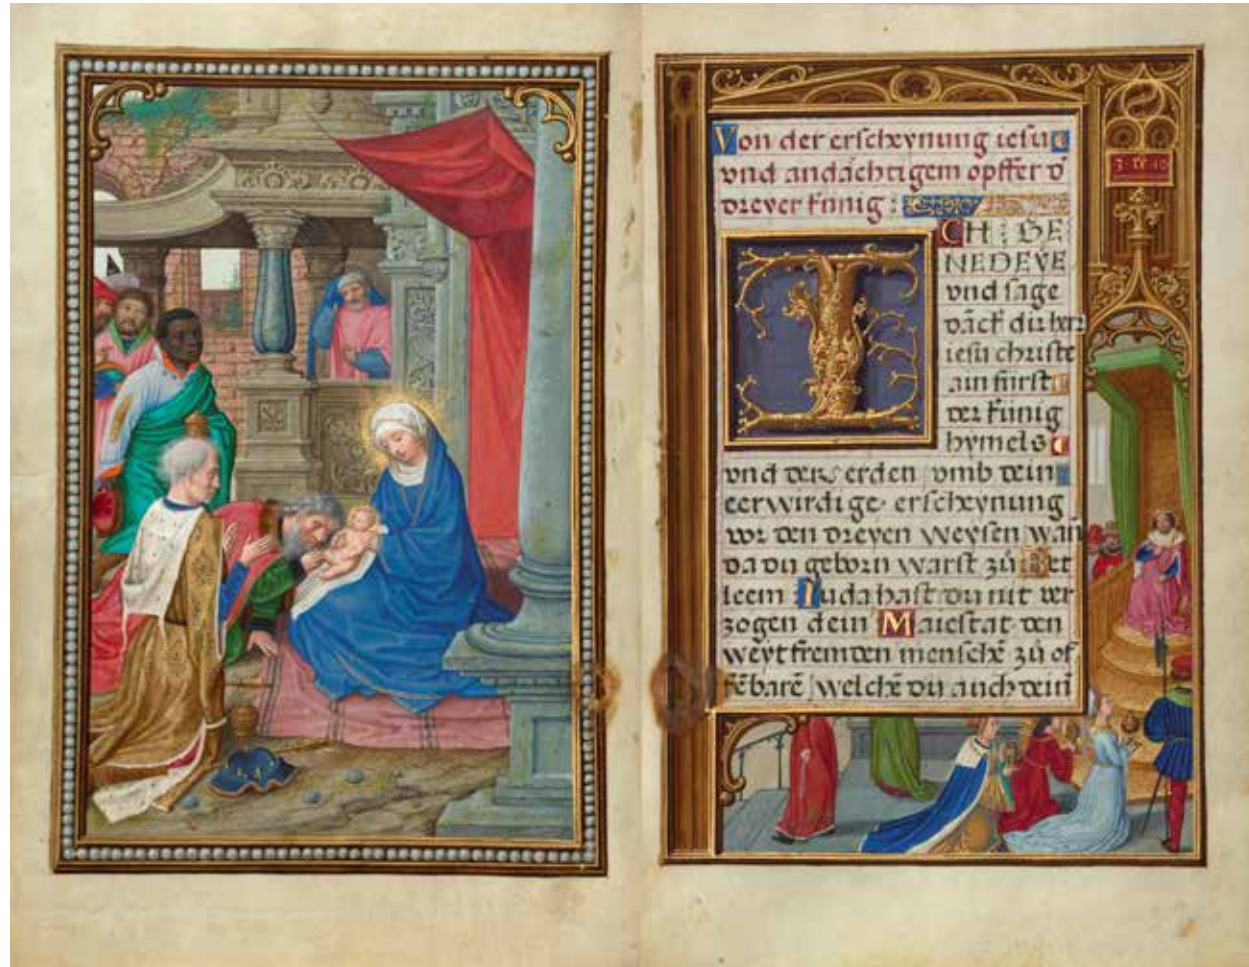 Von der erscheynung iesu
vnd andächtigem opffer d̄
dreyer künig :
ICH : BE
NEDEYE
vnd sage
dāck dir herr
iesu christe
ain fürst
der künig
hymels
vnd der erden vmb dein
eerwirdige erscheynung
vor den dreyen weysen wan̄
da du geborn warst zů Bet
leem Iuda hast du nit ver
zogen dein Maiestat den
weyt fremden menschē zů of
fēbarē / welchē du auch dein̄
3 · RE · 10